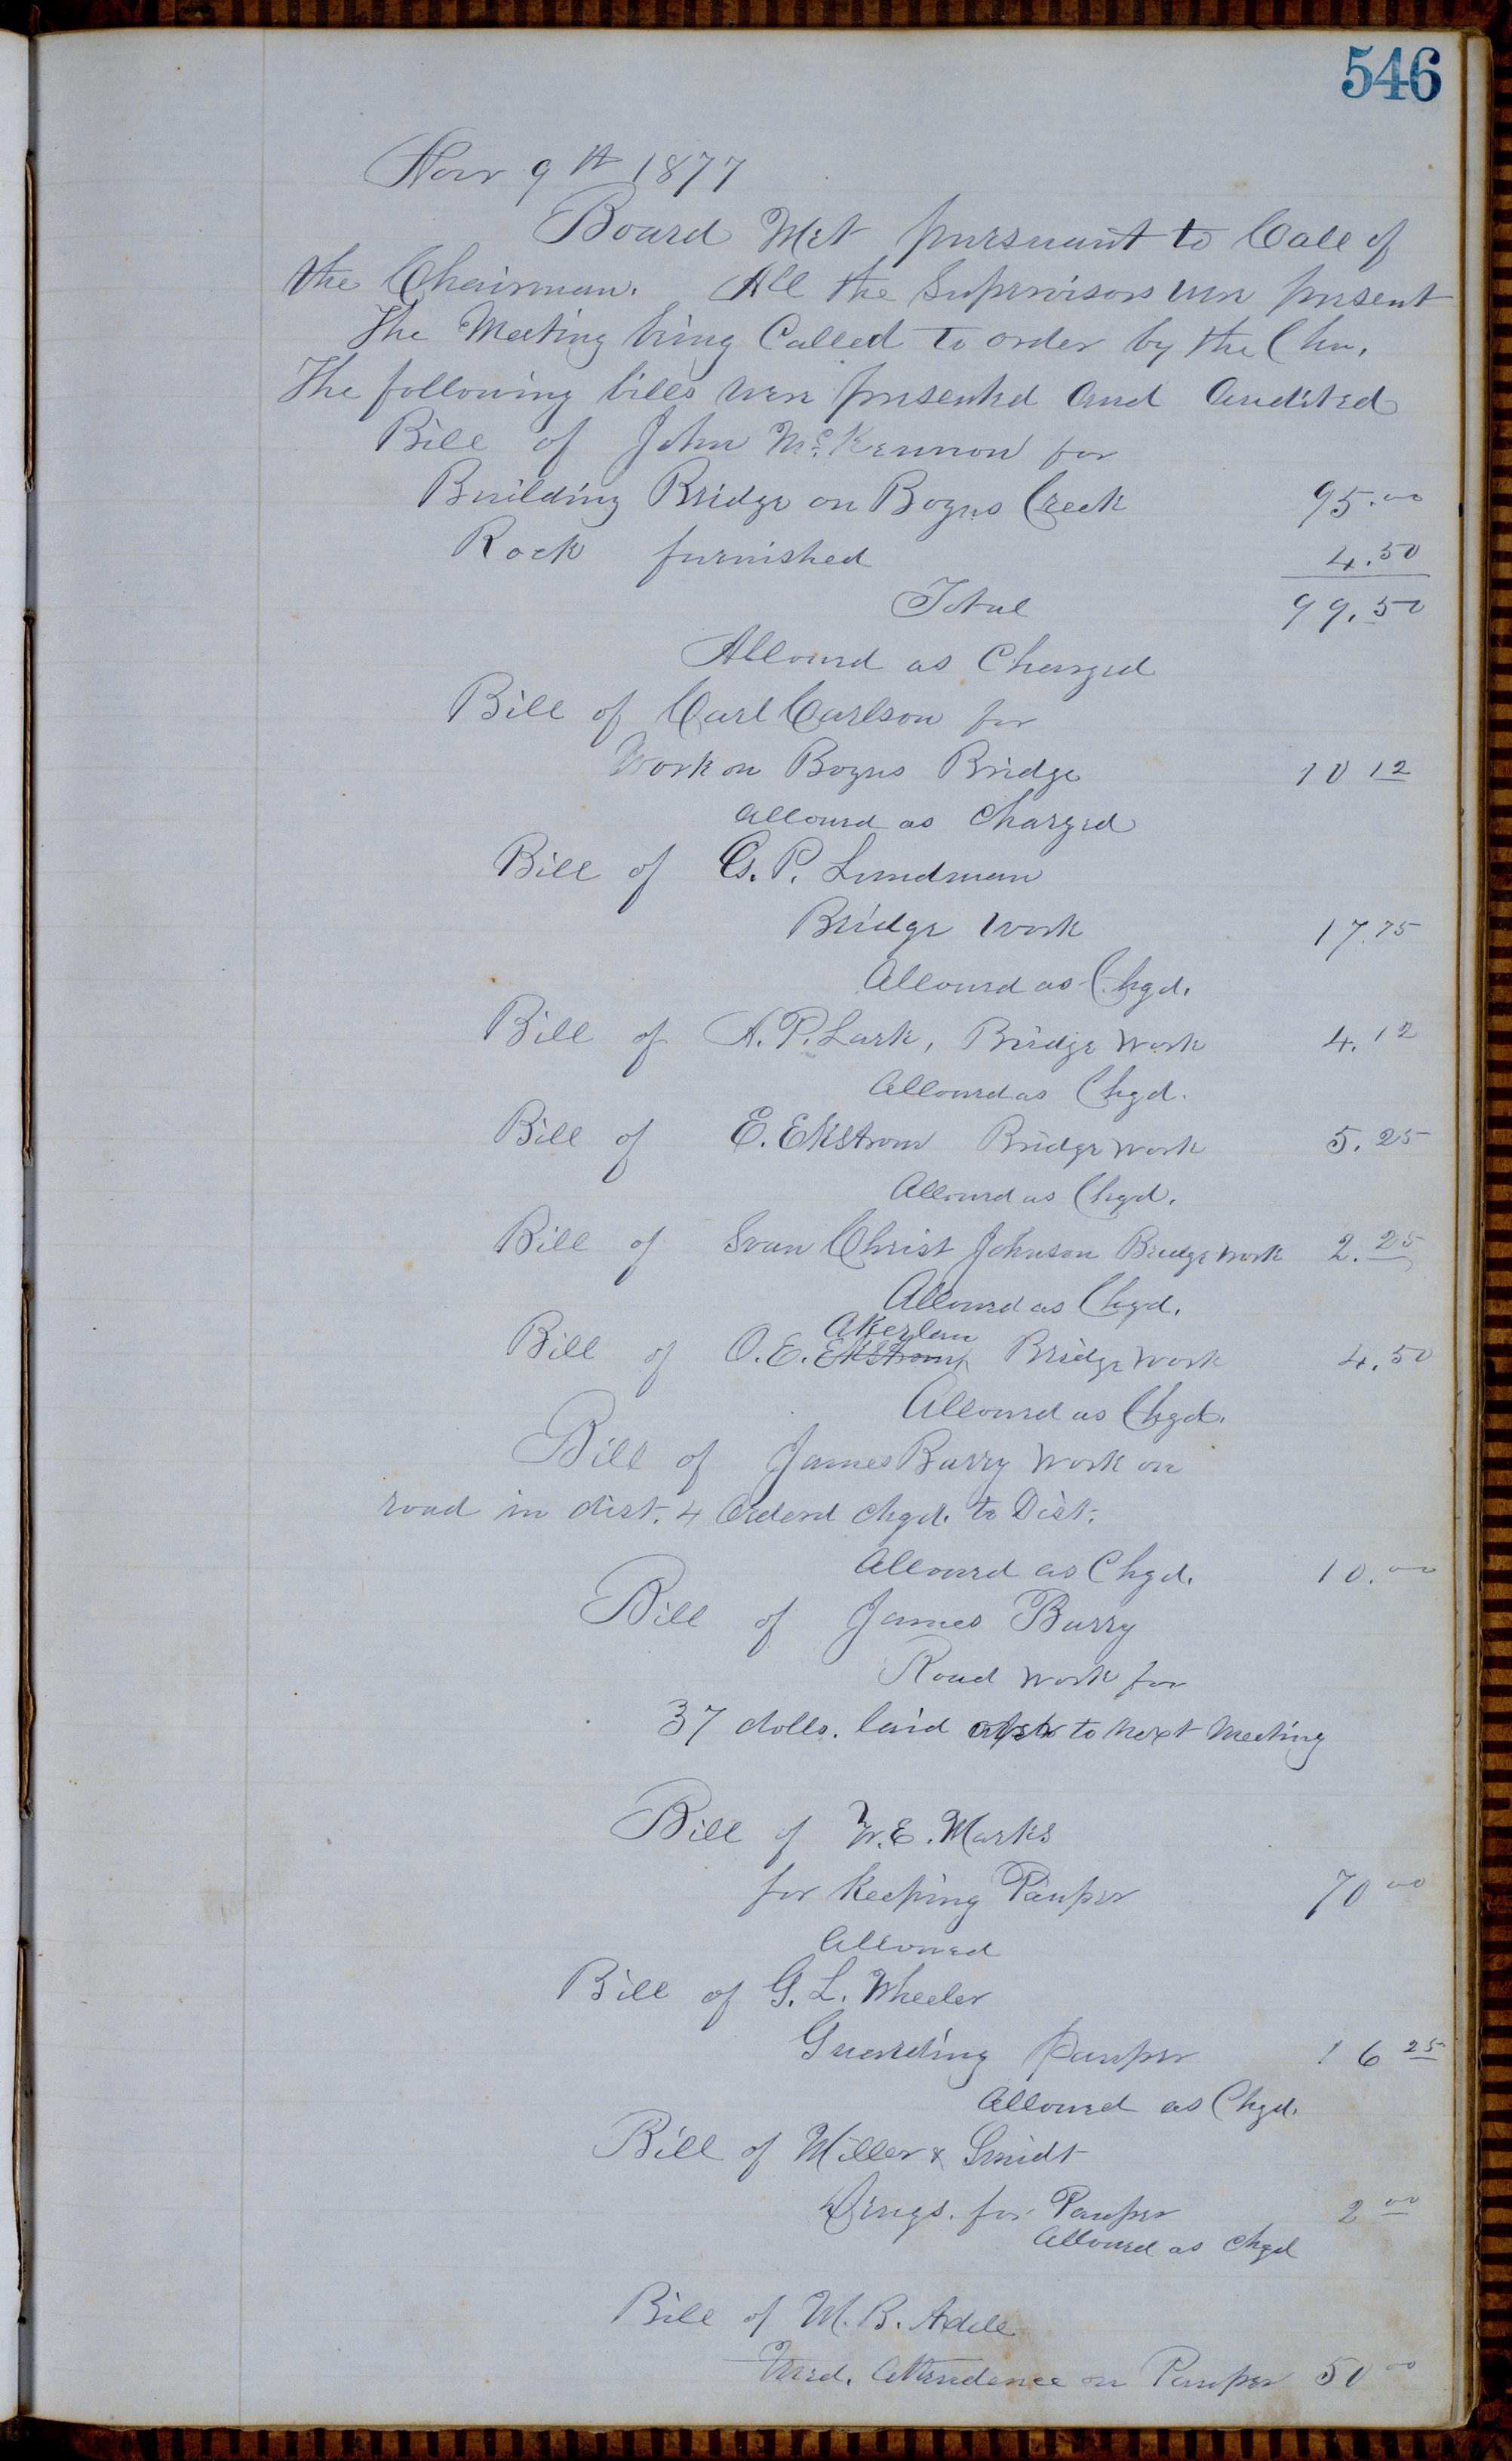 546
Nov 9th 1877
Board Met pursuant to Call of
the Chairman. All the Supervisors were present
The Meeting being Called to order by the Chn.
The following bills were presented and Audited
Bill of John McKennon for
Building Bridge on Bogus Creek 95.00
Rock furnished 4.50
Total 99.50
Allowed as Charged
Bill of Carl Carlson for
Work on Bogus Bridge 10 12
allowed as Charged
Bill of G. P. Lundman
Bridge Work 17.75
Allowed as Chgd.
Bill of A. P. Lark, Bridge Work 4.12
Allowed as Chgd.
Bill of E. Ekstrom Bridge work 5.25
Allowed as Chgd.
Bill of Svan Christ Johnson Bridge work 2.25
Allowed as Chgd.
Akerlan
Bill of O. E. Ekstrom Bridge Work 4.50
Allowed as Chgd.
Bill of James Barry Work on
road in dist. 4 Orderd chgd. to Dist.
Allowed as Chgd. 10.00
Bill of James Barry
Road work for
37 dolls. laid over to next Meeting
Bill of W. E. Marks
for Keeping Pauper 70 00
Allowed
Bill of G. L. Wheeler
Guarding Pauper 16 25
Allowed as Chgd.
Bill of Miller & Smidt
Drugs. for Pauper 2 00
Allowed as chgd
Bill of M. B. Adell
Med. Attendence on Pauper 50 00